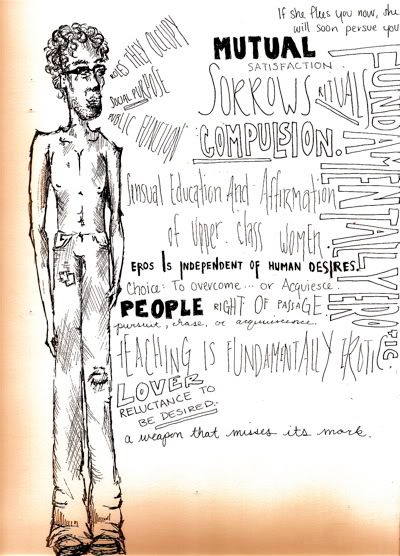 If she flees you now, she
will soon persue you
ROLES THEY OCCUPY
SOCIAL PURPOSE
PUBLIC FUNCTION
MUTUAL
SATISFACTION
SORROWS
RITUALS
COMPULSION.
FUNDAMENTALLY EROTIC
Sensual Education And Affirmation
of Upper. Class Women.
EROS IS INDEPENDENT OF HUMAN DESIRES.
Choice: To overcome... or Acquiesce.
PEOPLE RIGHT OF PASSAGE
pursuit, chase, or acquiescence.
TEACHING IS FUNDAMENTALLY EROTIC.
LOVER
RELUCTANCE TO
BE DESIRED.
a weapon that misses its mark.